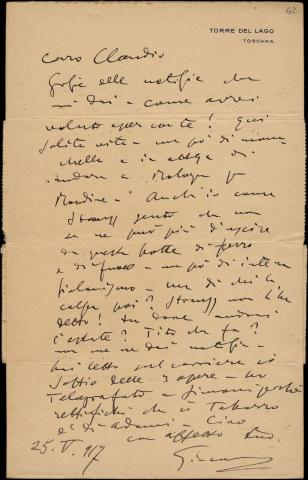 42
TORRE DEL LAGO
TOSCANA
Caro Clausetti
delle notizie che
mi dai - come avrei
voluto esser con te! Qui
solita vita - un pò di
e in attesa di
andare a Bologna p
Rondine - Anch'io come
Strauss sento che non
se ne può più d'uscire
da questa botte di ferro
e di fuoco - un pò di
- ma di chi la
colpa poi? Strauss non l'ha
detto! Tu dove andrai
l'estate? Tito che fa?
non me ne dai notizie.
hai letto sul corriere
delle 3 opere - ho
Telegrafato a Simoni perchè
rettifichi che è Tabarro
e di Adami - Ciao
con affetto tuo
25. V. 917